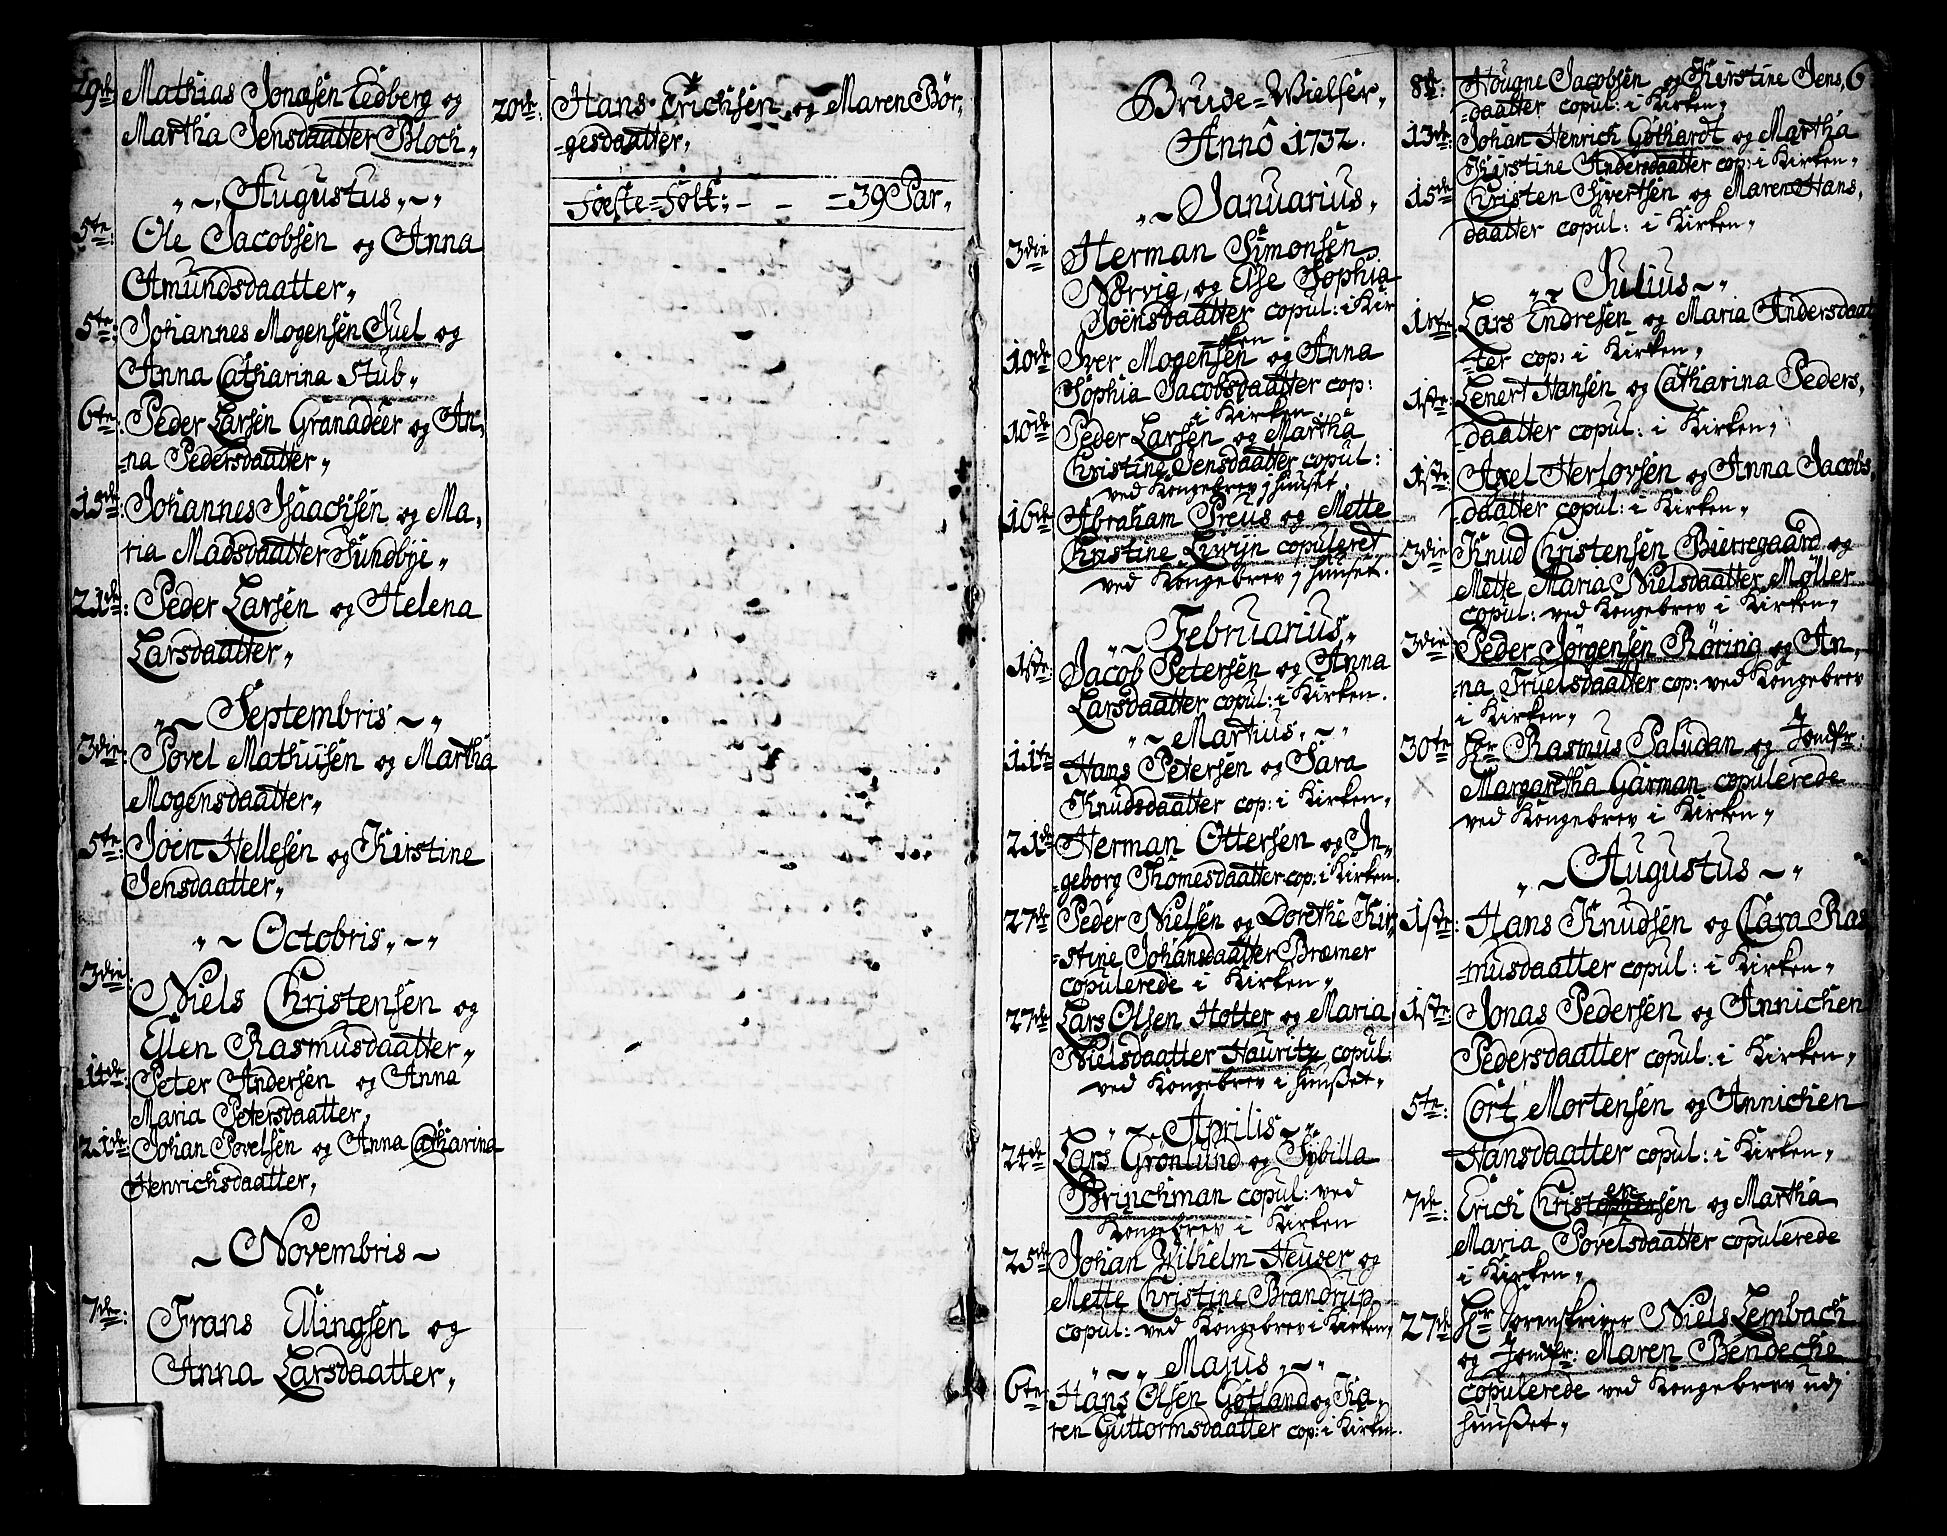 29de Mathias Jonasen Eedberg og
Martha Jensdaatter Bloch,,
,,~,Augustus,,~,,
5te: Ole Jacobsen og Anna
Amundsdaatter,,
5te: Johannes Mogensen Juel og
Anna Catharina Stub,,
6te: Peder Larsen Granadeer og An,,
=na Pedersdaatter,,
Johannes Isaachsen og Ma,
ria Madsdaatter Sundbye,,
21de: Peder Larsen og Helena
Larsdaatter,,
,,~Septembris~,,
3die: Povel Mathiisen og Martha
Mogensdaatter,,
5te: Joen Hellesen og Kirstine
Jensdaatter,,
,,~Octobris,,~,,
3die Niels Christensen og
Ellen Rasmusdaatter,,
14de: Peter Andersen og Anna
Maria Petersdaatter,
21de: Johan Povelsen og Anna Catharina
Henrichsdaatter,
~Novembris~
7de: Frans Ellingsen og
Anna Larsdaatter,
20de: Hans Erichsen og Maren Bør,
=gesdaatter,
Foeste=Folk: - - =39 Par,
Brude=Wielser,
Anno 1732.
,,~Januarius,
3die Herman Simonsen
Nørvig, og Else Sophia
Joensdaatter copul: i Kir
=ken
10de Iver Mogensen og Anna
Sophia Jacobsdaatter cop:
i Kirken,
10de Peder Larsen og Martha
Christine Jensdaatter copul:
ved Kongebrev j Huuset.
16de Abraham Preus og Mette
Christine copuleret
ved Kongebrev j Huuset.
,,~Februarius,,
1ste: Jacob Petersen og Anna
Larsdaatter copul: i Kirken.
,,~Martius,~,,
11te Hans Petersen og Sara
Knudsdaatter cop: i Kirken,
21de Herman Ottersen og In,,
=geborg Thomesdaatter cop: i Kirken.
27de Peder Nielsen og Dorethe Kir,
=stine Johansdaatter Bræmer
copulerede i Kirken,,
27de Lars Olsen Hotter og Maria
Nielsdaatter Hauritz copul:
ved Kongebrev i Huuset,,
,,~Aprilis~,,
24de Lars Grønlund og Sybilla
Brinchman copul: ved
Kongebrev i Kirken
25de Johan Wilhelm Heuser og
Mette Christine Brandrup
copul: ved Kongebrev i Kirken,
,,~Majus,~,,
6te: Hans Olsen Gotland og Ka,
ren Guttormsdaatter cop: i Kirken.
6
8de: Hougne Jacobsen og Kirstine Jens,
=daatter copul: i Kirken,,
13de: Johan Henrich Gothardt og Martha
Kirstine Andersdaatter cop: i Kirken,,
15de Christen Sivertsen og Maren Hans,
daatter copul: i Kirken,,
,,~Julius~,,
1ste: Lars Endresen og Maria Andersdaat
=ter cop: i Kirken,,
1ste: Lenert Hansen og Catharina Peders,
=daatter copul: i Kirken,,
1ste: Axel Herlovsen og Anna Jacobs,
=daatter copul: i Kirken,,
3die Knud Christensen Bierregaard og
Mette Maria Nielsdaatter Møller
copul: ved Kongebrev i Kirken,,
3die Peder Jørgensen Røring og An,
=na Truelsdaatter cop: ved Kongebrev
i Kirken,,
30te Hr Rasmus Paludan og Jomfr:
Margaretha Garman copulerede
ved Kongebrev i Kirken,,
,,~Augustus~,,
1ste: Hans Knudsen og Clara Ras
=musdaatter copul: i Kirken,,
1ste: Jonas Pedersen og Annichen
Pedersdaatter copul: i Kirken,,
5te: Cort Mortensen og Annichen
Hansdaatter copul: i Kirken,,
7de: Erich Christophersen og Martha
Maria Povelsdaatter copulerede
i Kirken,,
27de Hr Sorenskriver Niels Lembach
og Jomfr: Maren Bendeche
copulerede ved Kongebrev udj
Huuset,,